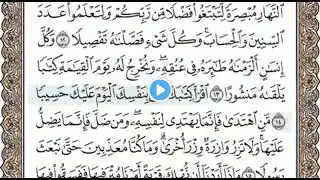 النَّهَارِ مُبْصِرَةً لِّتَبْتَغُوا۟ فَضْلًا مِّن رَّبِّكُمْ وَلِتَعْلَمُوا۟ عَدَدَ
ٱلسِّنِينَ وَٱلْحِسَابَ ۚ وَكُلَّ شَىْءٍ فَصَّلْنَٰهُ تَفْصِيلًا ١٢ وَكُلَّ
إِنسَٰنٍ أَلْزَمْنَٰهُ طَٰٓئِرَهُۥ فِى عُنُقِهِۦ ۖ وَنُخْرِجُ لَهُۥ يَوْمَ ٱلْقِيَٰمَةِ كِتَٰبًا
يَلْقَىٰهُ مَنشُورًا ١٣ ٱقْرَأْ كِتَٰبَكَ بِنَفْسِكَ ٱلْيَوْمَ عَلَيْكَ حَسِيبًا
١٤ مَّنِ ٱهْتَدَىٰ فَإِنَّمَا يَهْتَدِى لِنَفْسِهِۦ ۖ وَمَن ضَلَّ فَإِنَّمَا يَضِلُّ
عَلَيْهَا ۚ وَلَا تَزِرُ وَازِرَةٌ وِزْرَ أُخْرَىٰ ۗ وَمَا كُنَّا مُعَذِّبِينَ حَتَّىٰ نَبْعَثَ